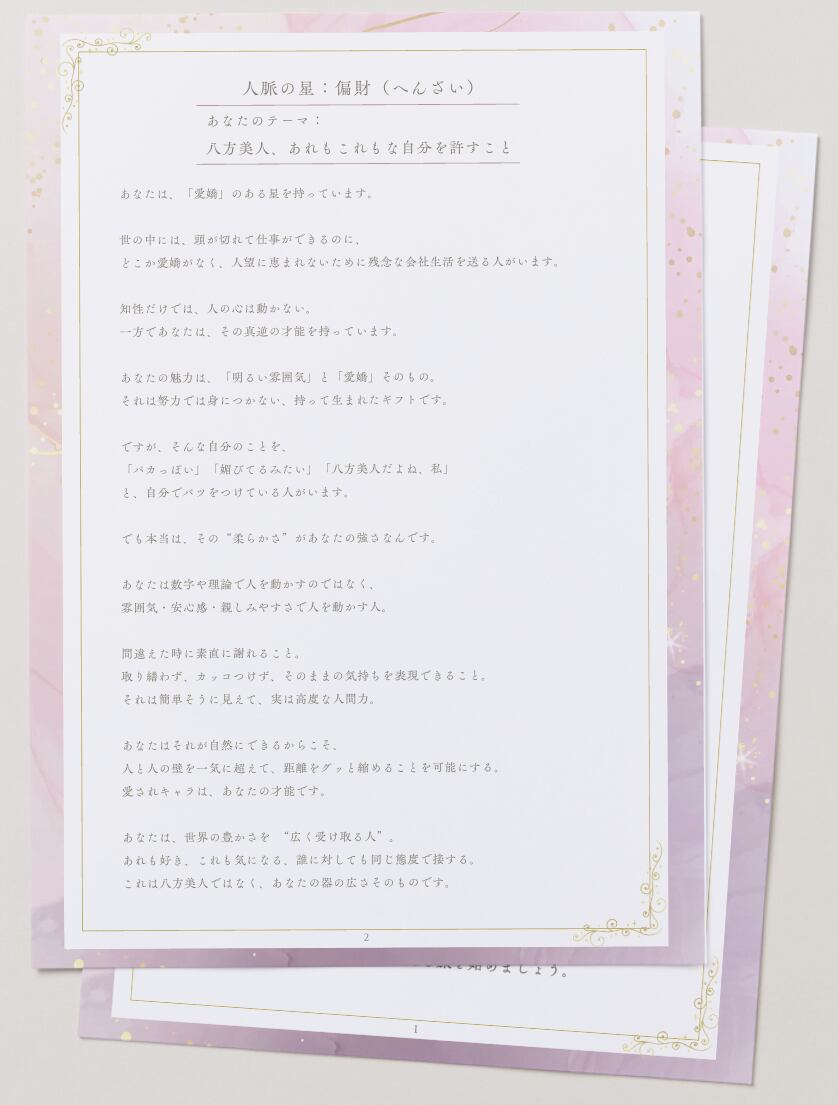 人脈の星：偏財（へんざい）
あなたのテーマ：
八方美人、あれもこれもな自分を許すこと
あなたは、「愛嬌」のある星を持っています。
世の中には、頭が切れて仕事ができるのに、
どこか愛嬌がなく、人望に恵まれないために残念な会社生活を送る人がいます。
知性だけでは、人の心は動かない。
一方であなたは、その真逆の才能を持っています。
あなたの魅力は、「明るい雰囲気」と「愛嬌」そのもの。
それは努力では身につかない、持って生まれたギフトです。
ですが、そんな自分のことを、
「バカっぽい」「媚びてるみたい」「八方美人だよね、私」
と、自分でバツをつけている人がいます。
でも本当は、その“柔らかさ”があなたの強さなんです。
あなたは数字や理論で人を動かすのではなく、
雰囲気・安心感・親しみやすさで人を動かす人。
間違えた時に素直に謝れること。
取り繕わず、カッコつけず、そのままの気持ちを表現できること。
それは簡単そうに見えて、実は高度な人間力。
あなたはそれが自然にできるからこそ、
人と人の壁を一気に超えて、距離をグッと縮めることを可能にする。
愛されキャラは、あなたの才能です。
あなたは、世界の豊かさを　“広く受け取る人”。
あれも好き、これも気になる、誰に対しても同じ態度で接する。
これは八方美人ではなく、あなたの器の広さそのものです。
2
を始めましょう。
1